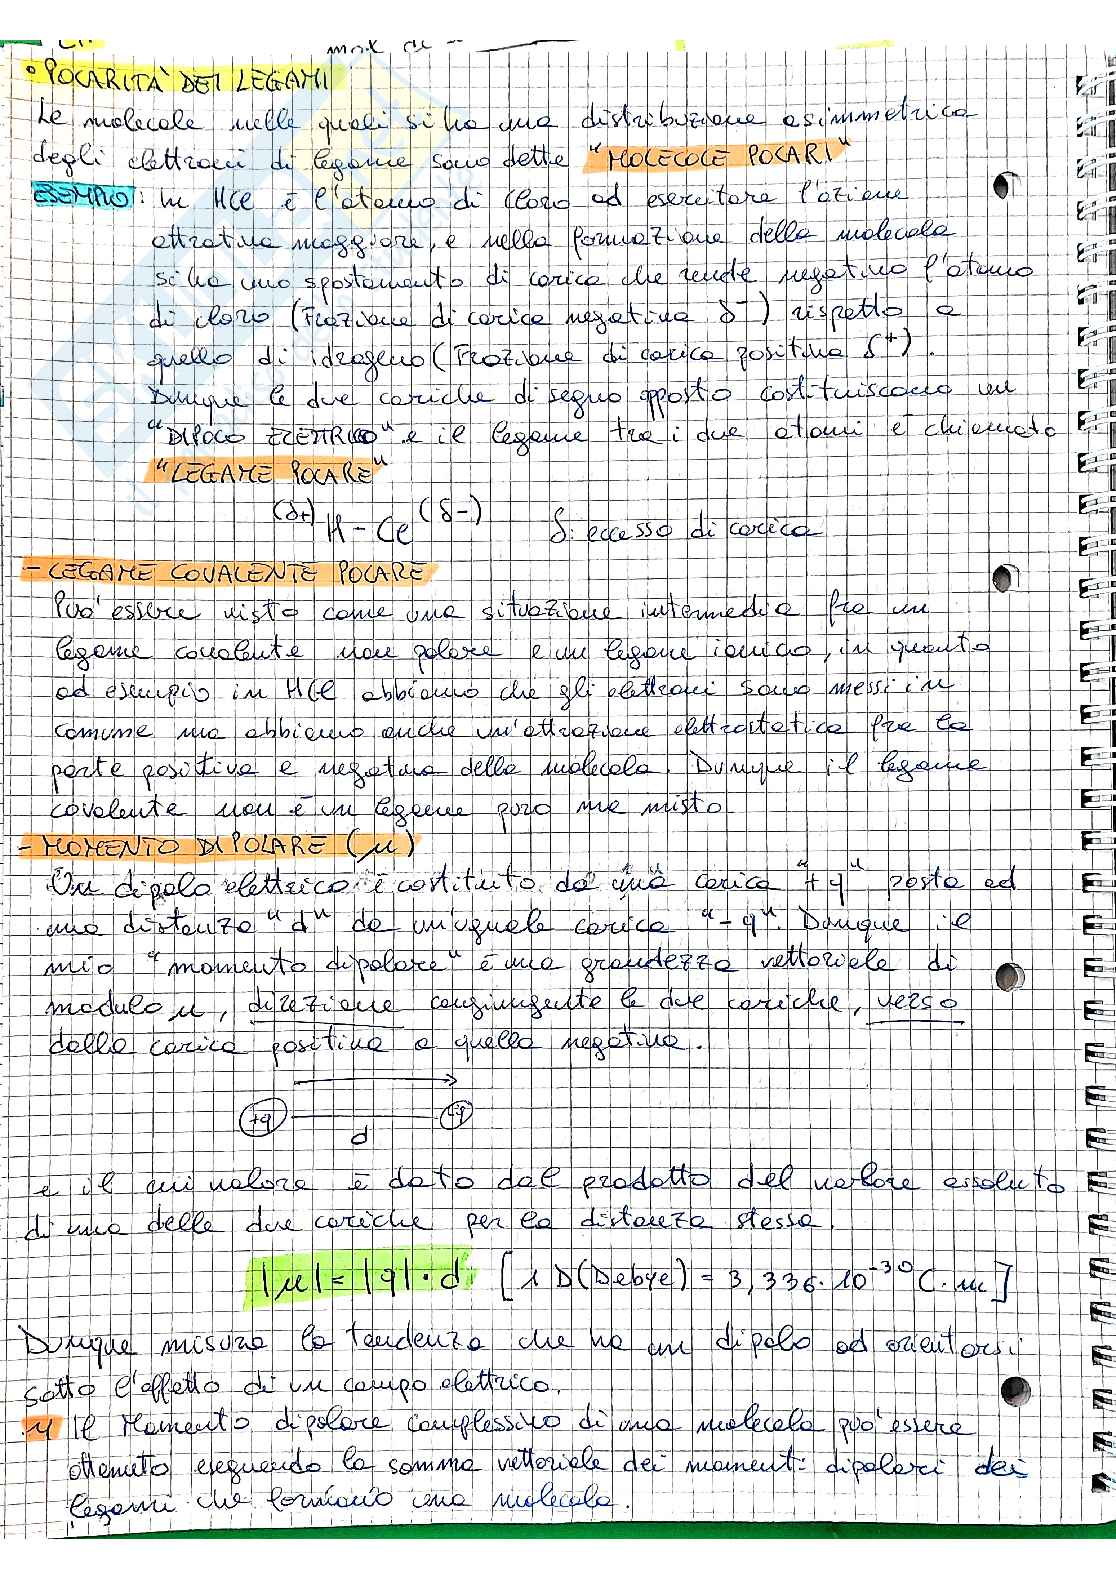 mol di
• POLARITÀ DEI LEGAMI
Le molecole nelle quali si ha una distribuzione asimmetrica
degli elettroni di legame sono dette "MOLECOLE POLARI"
ESEMPIO: In HCl è l'atomo di Cloro ad esercitare l'azione
attrattiva maggiore, e nella formazione della molecola
si ha uno spostamento di carica che rende negativo l'atomo
di cloro (Frazione di carica negativa δ⁻) rispetto a
quello di idrogeno (Frazione di carica positiva δ⁺).
Dunque le due cariche di segno opposto costituiscono un
"DIPOLO ELETTRICO" e il legame tra i due atomi è chiamato
"LEGAME POLARE"
(δ+) H - Cl (δ-) δ: eccesso di carica
- LEGAME COVALENTE POLARE
Puo' essere visto come una situazione intermedia fra un
legame covalente non polare e un legame ionico, in quanto
ad esempio in HCl abbiamo che gli elettroni sono messi in
comune ma abbiamo anche un'attrazione elettrostatica fra la
parte positiva e negativa della molecola. Dunque il legame
covalente non è un legame puro ma misto
- MOMENTO DIPOLARE (μ)
Un dipolo elettrico è costituito da una carica "+q" posta ad
una distanza "d" da un'uguale carica "-q". Dunque il
mio "momento dipolare" è una grandezza vettoriale di
modulo μ, direzione congiungente le due cariche, verso
dalla carica positiva a quella negativa.
+q -q
d
e il cui valore è dato dal prodotto del valore assoluto
di una delle due cariche per la distanza stessa.
|μ| = |q| • d [1 D(Debye) = 3,336 · 10⁻³⁰ C · m]
Dunque misura la tendenza che ha un dipolo ad orientarsi
sotto l'effetto di un campo elettrico.
Il Momento dipolare complessivo di una molecola puo' essere
ottenuto eseguendo la somma vettoriale dei momenti dipolari dei
legami che formano una molecola.